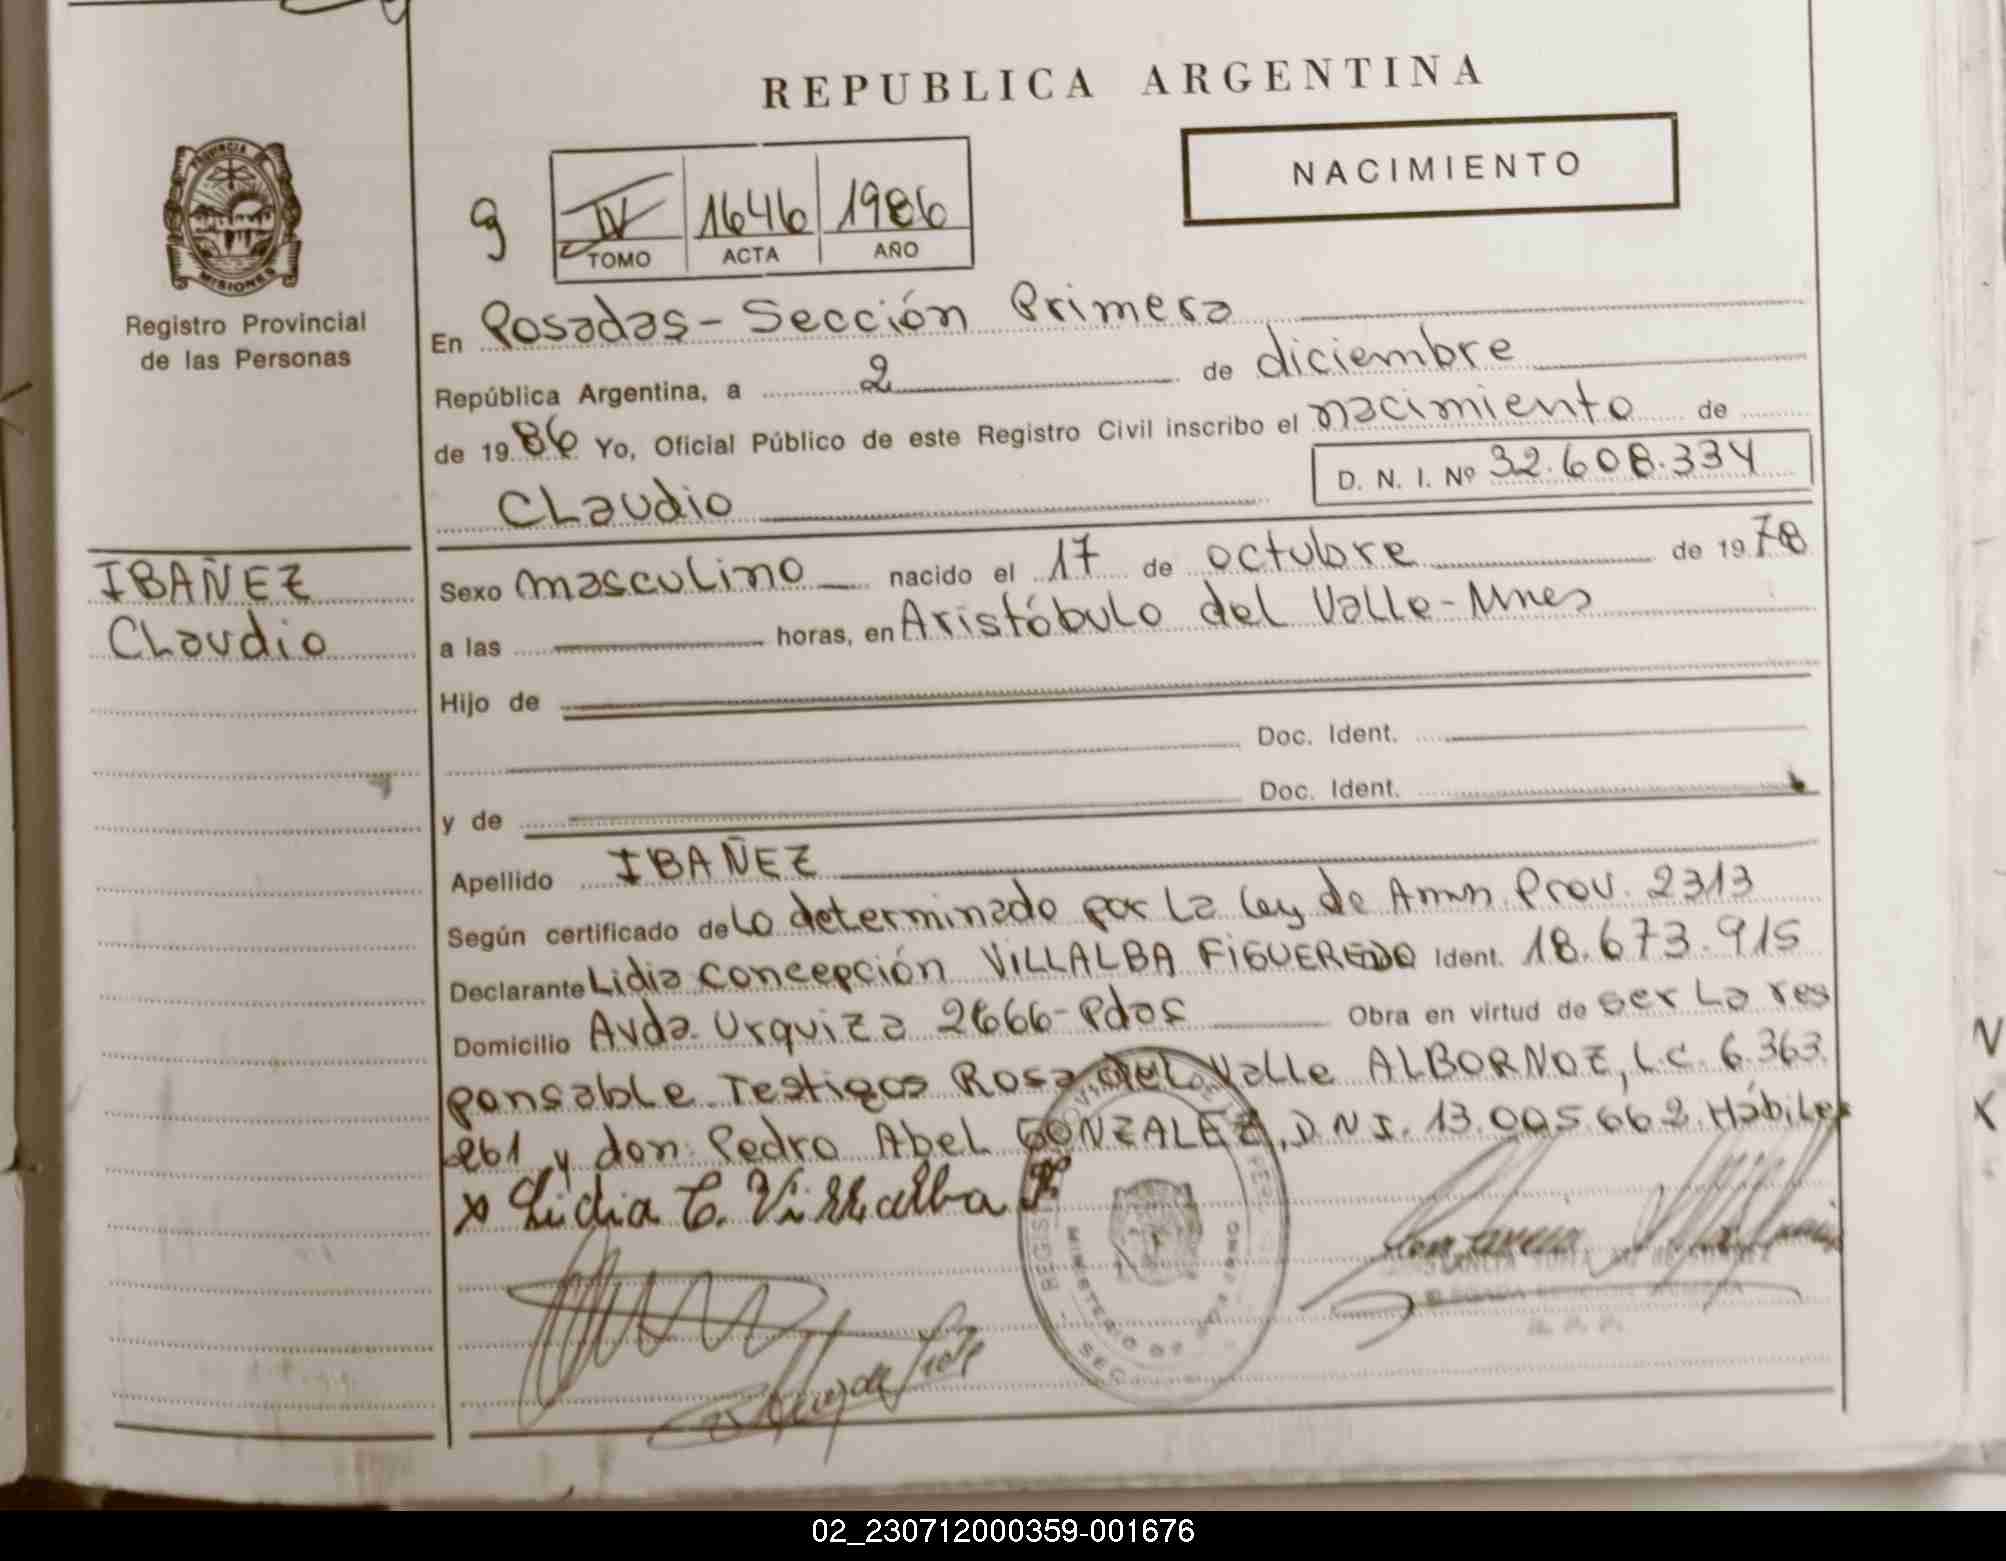 REPUBLICA ARGENTINA
NACIMIENTO
PROVINCIA DE
MISIONES
Registro Provincial
de las Personas
9
IV 1646 1986
TOMO ACTA AÑO
En Posadas - Sección Primera
República Argentina, a 2 de diciembre
de 1986 Yo, Oficial Público de este Registro Civil inscribo el nacimiento de
D. N. I. Nº 32.608.334
Claudio
IBAÑEZ
Claudio
Sexo masculino nacido el 17 de octubre de 1978
a las horas, en Aristóbulo del Valle - Mnes
Hijo de
Doc. Ident.
y de Doc. Ident.
Apellido IBAÑEZ
Según certificado de lo determinado por la ley de Amn. Prov. 2313
Declarante Lidia Concepción VILLALBA FIGUEREDO Ident. 18.673.915
Domicilio Avda. Urquiza 2666 - Pdas Obra en virtud de ser la res
ponsable. Testigos Rosa del Valle ALBORNOZ, L.C. 6.363.
261 y don: Pedro Abel GONZALEZ, D N I. 13.005.662. Hábiles
x Lidia C. Villalba F.
MINISTERIO DE GOBIERNO
02_230712000359-001676